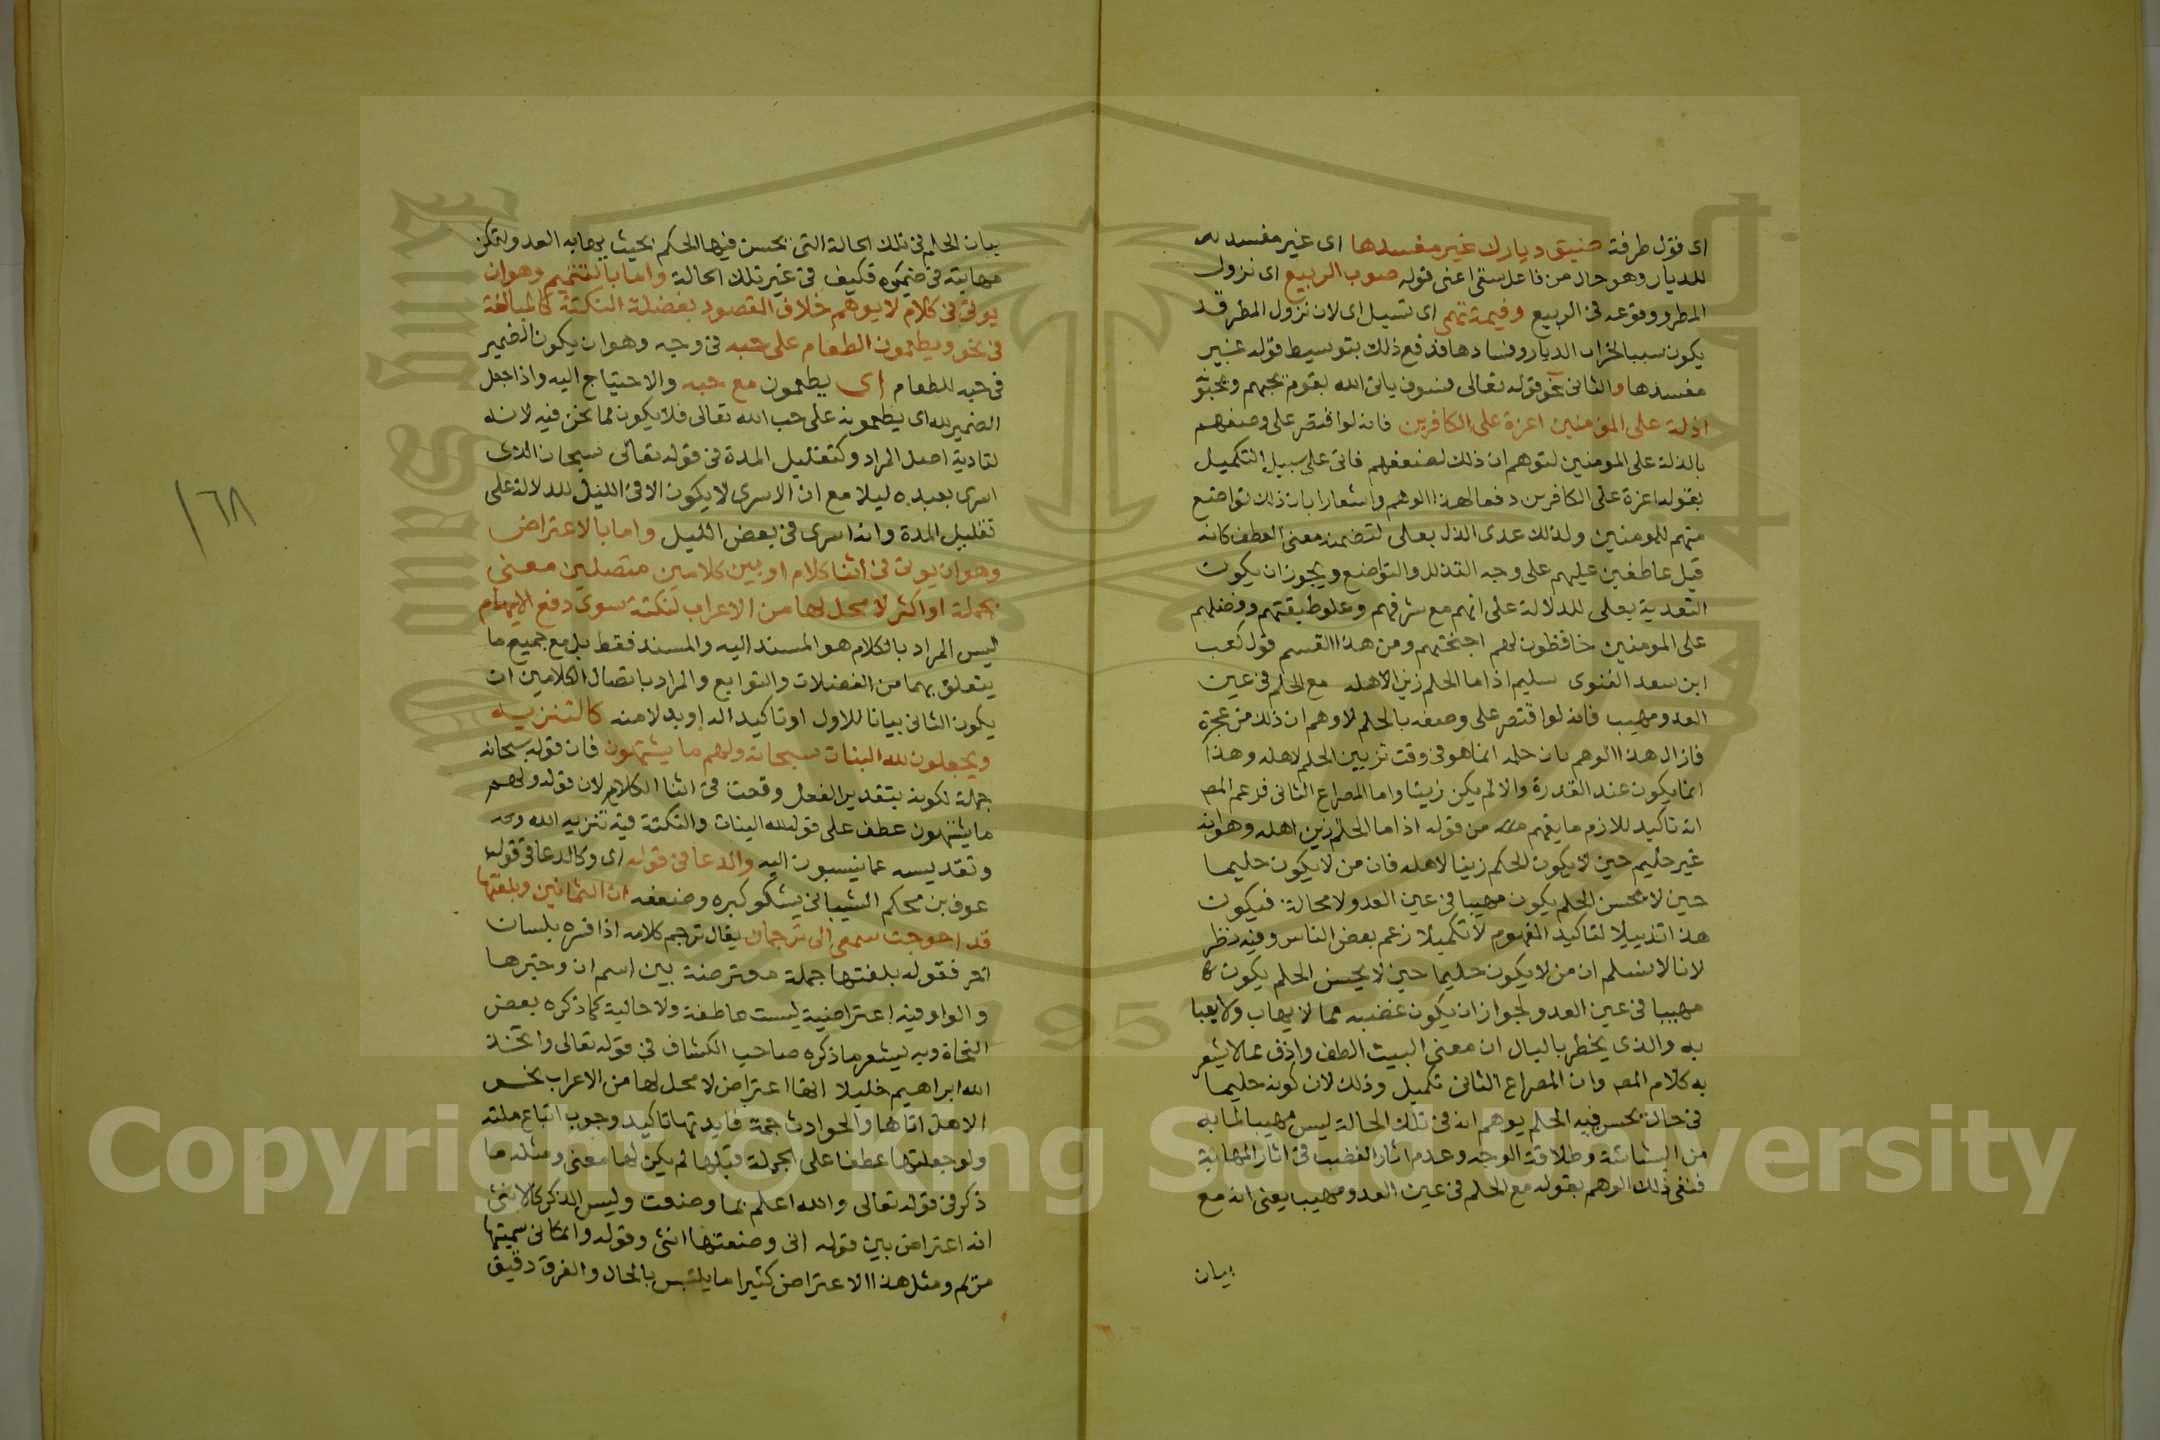 اى قول طرفة فسقى ديارك غير مفسدها اى غير مفسد
للديار وهو حال من فاعل سقى اعنى قوله صوب الربيع اى نزول
المطر ووقوعه فى الربيع وديمة تهمى اى تسيل اى لان نزول المطر قد
يكون سببا لخراب الديار وفسادها فدفع ذلك بتوسيط قوله غير
مفسدها والثانى نحو قوله تعالى فسوف ياتى الله بقوم يحبهم ويحبونه
اذلة على المؤمنين اعزة على الكافرين فانه لو اقتصر على وصفهم
بالذلة على المومنين لتوهم ان ذلك لضعفهم فاتى على سبيل التكميل
بقوله اعزة على الكافرين دفعا لهذا الوهم واشعارا بان ذلك تواضع
منهم للمومنين ولذلك عدى الذل بعلى لتضمنه معنى العطف كانه
قيل عاطفين عليهم على وجه التذلل والتواضع ويجوز ان يكون
التعدية بعلى للدلالة على انهم مع شرفهم وعلو طبقتهم وفضلهم
على المومنين خافظون لهم اجنحتهم ومن هذا القسم قول كعب
ابن سعد الغنوى سليم اذا ما الحلم زين لاهله مع الحلم فى عين
العدو مهيب فانه لو اقتصر على وصفه بالحلم لاوهم ان ذلك من عجزه
فازال هذا الوهم بان حلمه انما هو فى وقت تزيين الحلم لاهله وهذا
انما يكون عند القدرة والا لم يكن زينا واما المصراع الثانى فزعم المص
انه تاكيد للازم ما يفهم من قوله اذا ما الحلم زين اهله وهو انه
غير حليم حين لا يكون الحكم زينا لاهله فان من لا يكون حليما
حين لا يحسن الحلم يكون مهيبا فى عين العدو لا محالة فيكون
هذا تذييلا لتاكيد المفهوم لا تكميلا زعم بعض الناس وفيه نظر
لانا لا نسلم ان من لا يكون حليما حين لا يحسن الحلم يكون
مهيبا فى عين العدو لجواز ان يكون غضبه مما لا يهاب ولا يعبا
به والذى يخطر بالبال ان معنى البيت الطف وادق مما لا يشعر
به كلام المص وان المصراع الثانى تكميل وذلك لان كونه حليما
فى حال يحسن فيه الحلم يوهم انه فى تلك الحالة ليس مهيبا لما به
من البشاشة وطلاقة الوجه وعدم اثار الغضب فى اثار المهابة
فنفى ذلك الوهم بقوله مع الحلم فى عين العدو مهيب يعنى انه مع
بيان
بيان الحلم فى تلك الحالة التى يحسن فيها الحكم بحيث يهابه العدو لتمكن
مهابته فى ضميره فكيف فى غير تلك الحالة واما بالتتميم وهو ان
يوتى فى كلام لا يوهم خلاف المقصود بفضلة لنكتة كالمبالغة
فى نحو ويطعمون الطعام على حبه فى وجه وهو ان يكون الضمير
فى حبه للطعام اى يطعمون مع حبه والاحتياج اليه واذا جعل
الضمير لله اى يطعمونه على حب الله تعالى فلا يكون مما نحن فيه لانه
لتادية اصل المراد وكتقليل المدة فى قوله تعالى سبحان الذى
اسرى بعبده ليلا مع ان الاسرى لا يكون الا فى الليل للدلالة على
تقليل المدة وانه اسرى فى بعض الليل واما بالاعتراض
وهو ان يوتى فى اثنا كلام او بين كلامين متصلين معنى
بجملة او اكثر لا محل لها من الاعراب لنكتة سوى دفع الايهام
ليس المراد بالكلام هو المسند اليه والمسند فقط بل مع جميع ما
يتعلق بهما من الفضلات والتوابع والمراد باتصال الكلامين ان
يكون الثانى بيانا للاول او تاكيدا له او بدلا منه كالتنزيه
ويجعلون لله البنات سبحانه ولهم ما يشتهون فان قوله سبحانه
جملة لكونه بتقدير الفعل وقعت فى اثنا الكلام لان قوله ولهم
ما يشتهون عطف على قوله لله البنات والنكتة فيه تنزيه الله
وتقديسه عما ينسبون اليه والدعا فى قوله اى وكالدعا فى قول
عوف بن محكم الشيبانى يشكو كبره وضعفه ان الثمانين وبلغتها
قد احوجت سمعى الى ترجمان يقال ترجم كلامه اذا فسره بلسان
اخر فقوله بلغتها جملة معترضة بين اسم ان وخبرها
والواو فيه اعتراضية ليست عاطفة ولا حالية كما ذكره بعض
النحاة وبه يشعر ما ذكره صاحب الكشاف فى قوله تعالى واتخذ
الله ابراهيم خليلا انها اعتراض لا محل لها من الاعراب نحو
الا هل اتاها والحوادث جمة فايدتها تاكيد وجوب اتباع ملته
ولو جعلتها عطفا على الجملة قبلها لم يكن لها معنى ومثله ما
ذكر فى قوله تعالى والله اعلم بما وضعت وليس الذكر كالانثى
انه اعتراض بين قوله انى وضعتها انثى وقوله وانى سميتها
مريم ومثل هذا الاعتراض كثيرا ما يلتبس بالحال والفرق دقيق
١٦٨
Copyright © King Saud University
1957